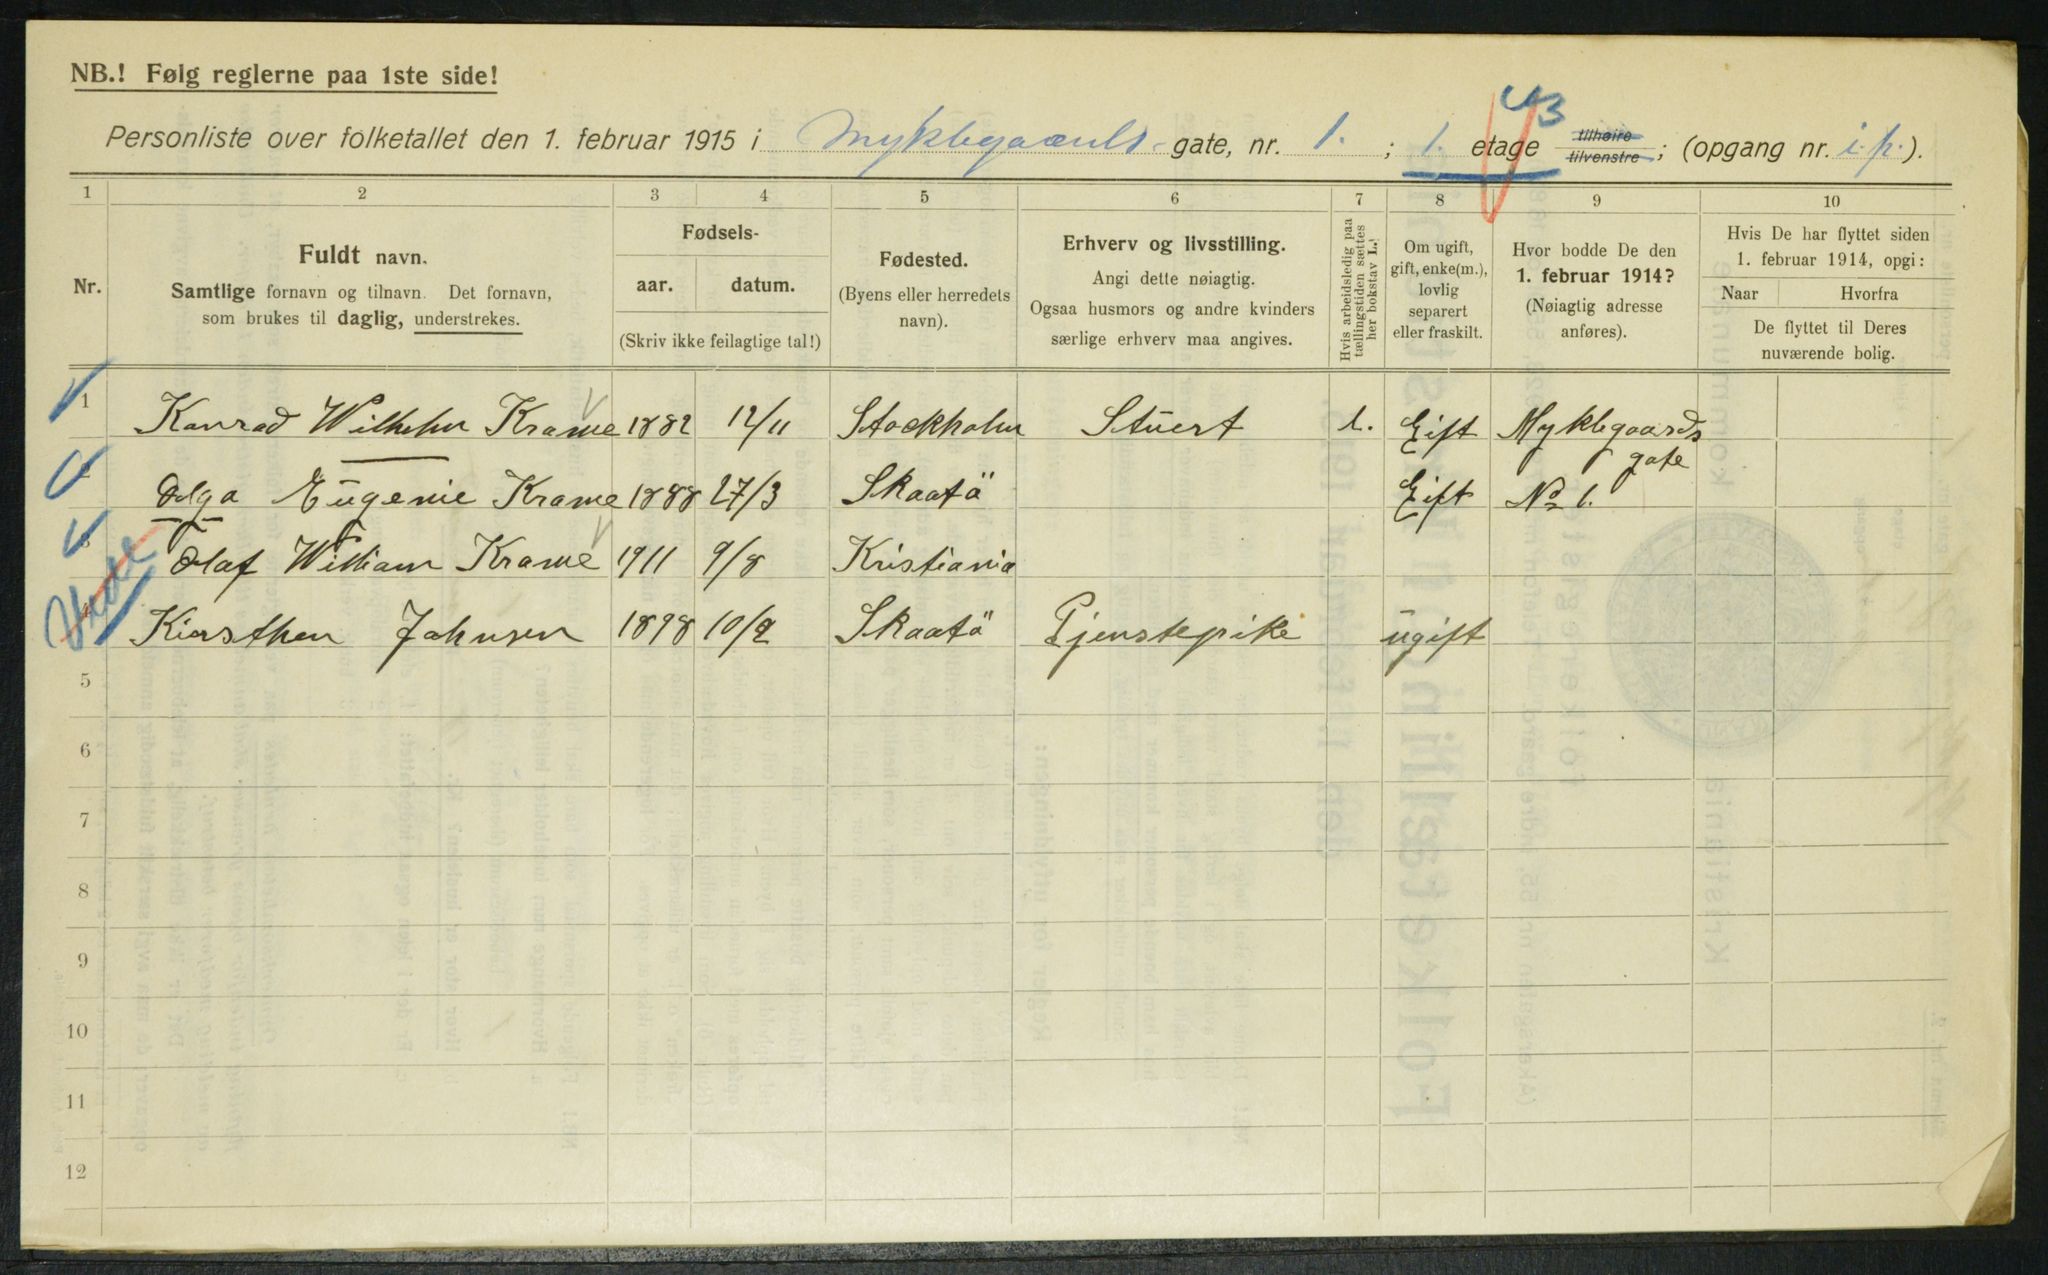 NB.! Følg reglerne paa 1ste side!
43
Personliste over folketallet den 1. februar 1915 i Myklegaards-gate, nr. 1. ; 1. etage tilhøire tilvenstre ; (opgang nr. i.p.).
1 2 3 4 5 6 7 8 9 10
Nr.
Fuldt navn.
Samtlige fornavn og tilnavn. Det fornavn,
som brukes til daglig, understrekes.
Fødsels-
aar. datum.
(Skriv ikke feilagtige tal!)
Fødested.
(Byens eller herredets
navn).
Erhverv og livsstilling.
Angi dette nøiagtig.
Ogsaa husmors og andre kvinders
særlige erhverv maa angives.
Hvis arbeidsledig paa
tællingstiden sættes
her bokstav L.!
Om ugift,
gift, enke(m.),
lovlig
separert
eller fraskilt.
Hvor bodde De den
1. februar 1914?
(Nøiagtig adresse
anføres).
Hvis De har flyttet siden
1. februar 1914, opgi:
Naar Hvorfra
De flyttet til Deres
nuværende bolig.
1 Konrad Wilhelm Krame 1882 12/11 Stockholm Stuert l. Gift Myklegaards
gate
2 Olga Eugenie Krame 1888 27/3 Skaatö Gift No 1.
3 Olaf William Krame 1911 9/8 Kristiania
4 Kirsthen Johnsen 1898 10/2 Skaatö Tjenstepike ugift
5
6
7
8
9
10
11
12